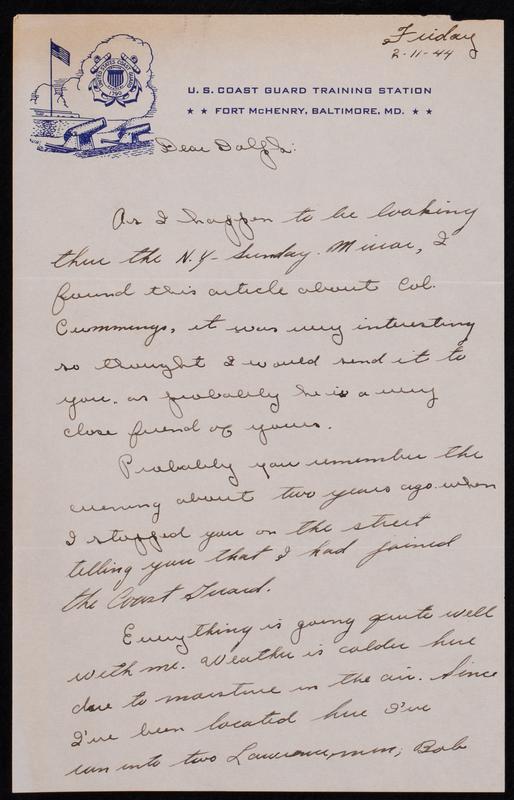 Friday
2-11-44
U.S. COAST GUARD TRAINING STATION
★ ★ FORT McHENRY, BALTIMORE, MD. ★ ★
Dear Dolph:
As I happen to be looking
thru the N.Y. Sunday. Mirror, I
found this article about Col.
Cummings, it was very interesting
so thought I would send it to
you. as probably he is a very
close friend of yours.
Probably you remember the
evening about two years ago when
I stopped you on the street
telling you that I had joined
the Coast Guard.
Everything is going quite well
with me. Weather is colder here
due to moisture in the air. Since
I've been located here I've
run into two Lawrence, men; Bob